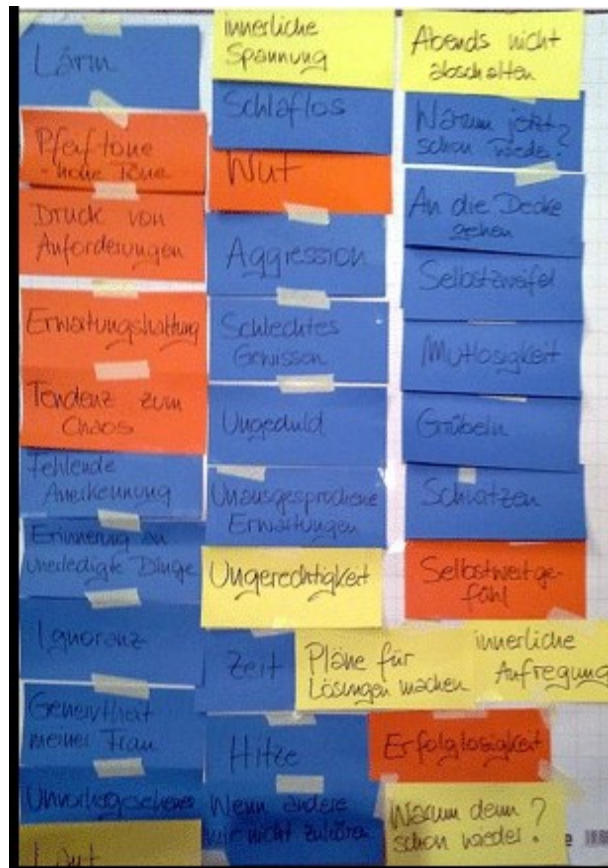 Lärm
Pfeiftöne
- hohe Töne
Druck von
Anforderungen
Erwartungshaltung
Tendenz zum
Chaos
Fehlende
Anerkennung
Erinnerung an
unerledigte Dinge
Ignoranz
Genervtheit
meiner Frau
Unvorhergesehenes
Laut
innerliche
Spannung
Schlaflos
Wut
Aggression
Schlechtes
Gewissen
Ungeduld
Unausgesprochene
Erwartungen
Ungerechtigkeit
Zeit
Hitze
Wenn andere
nicht zuhören
Abends nicht
abschalten
Warum jetzt
schon wieder?
An die Decke
gehen
Selbstzweifel
Mutlosigkeit
Grübeln
Schwatzen
Selbstwertge-
fühl
Pläne für
Lösungen machen
innerliche
Aufregung
Erfolglosigkeit
Warum denn
schon wieder?